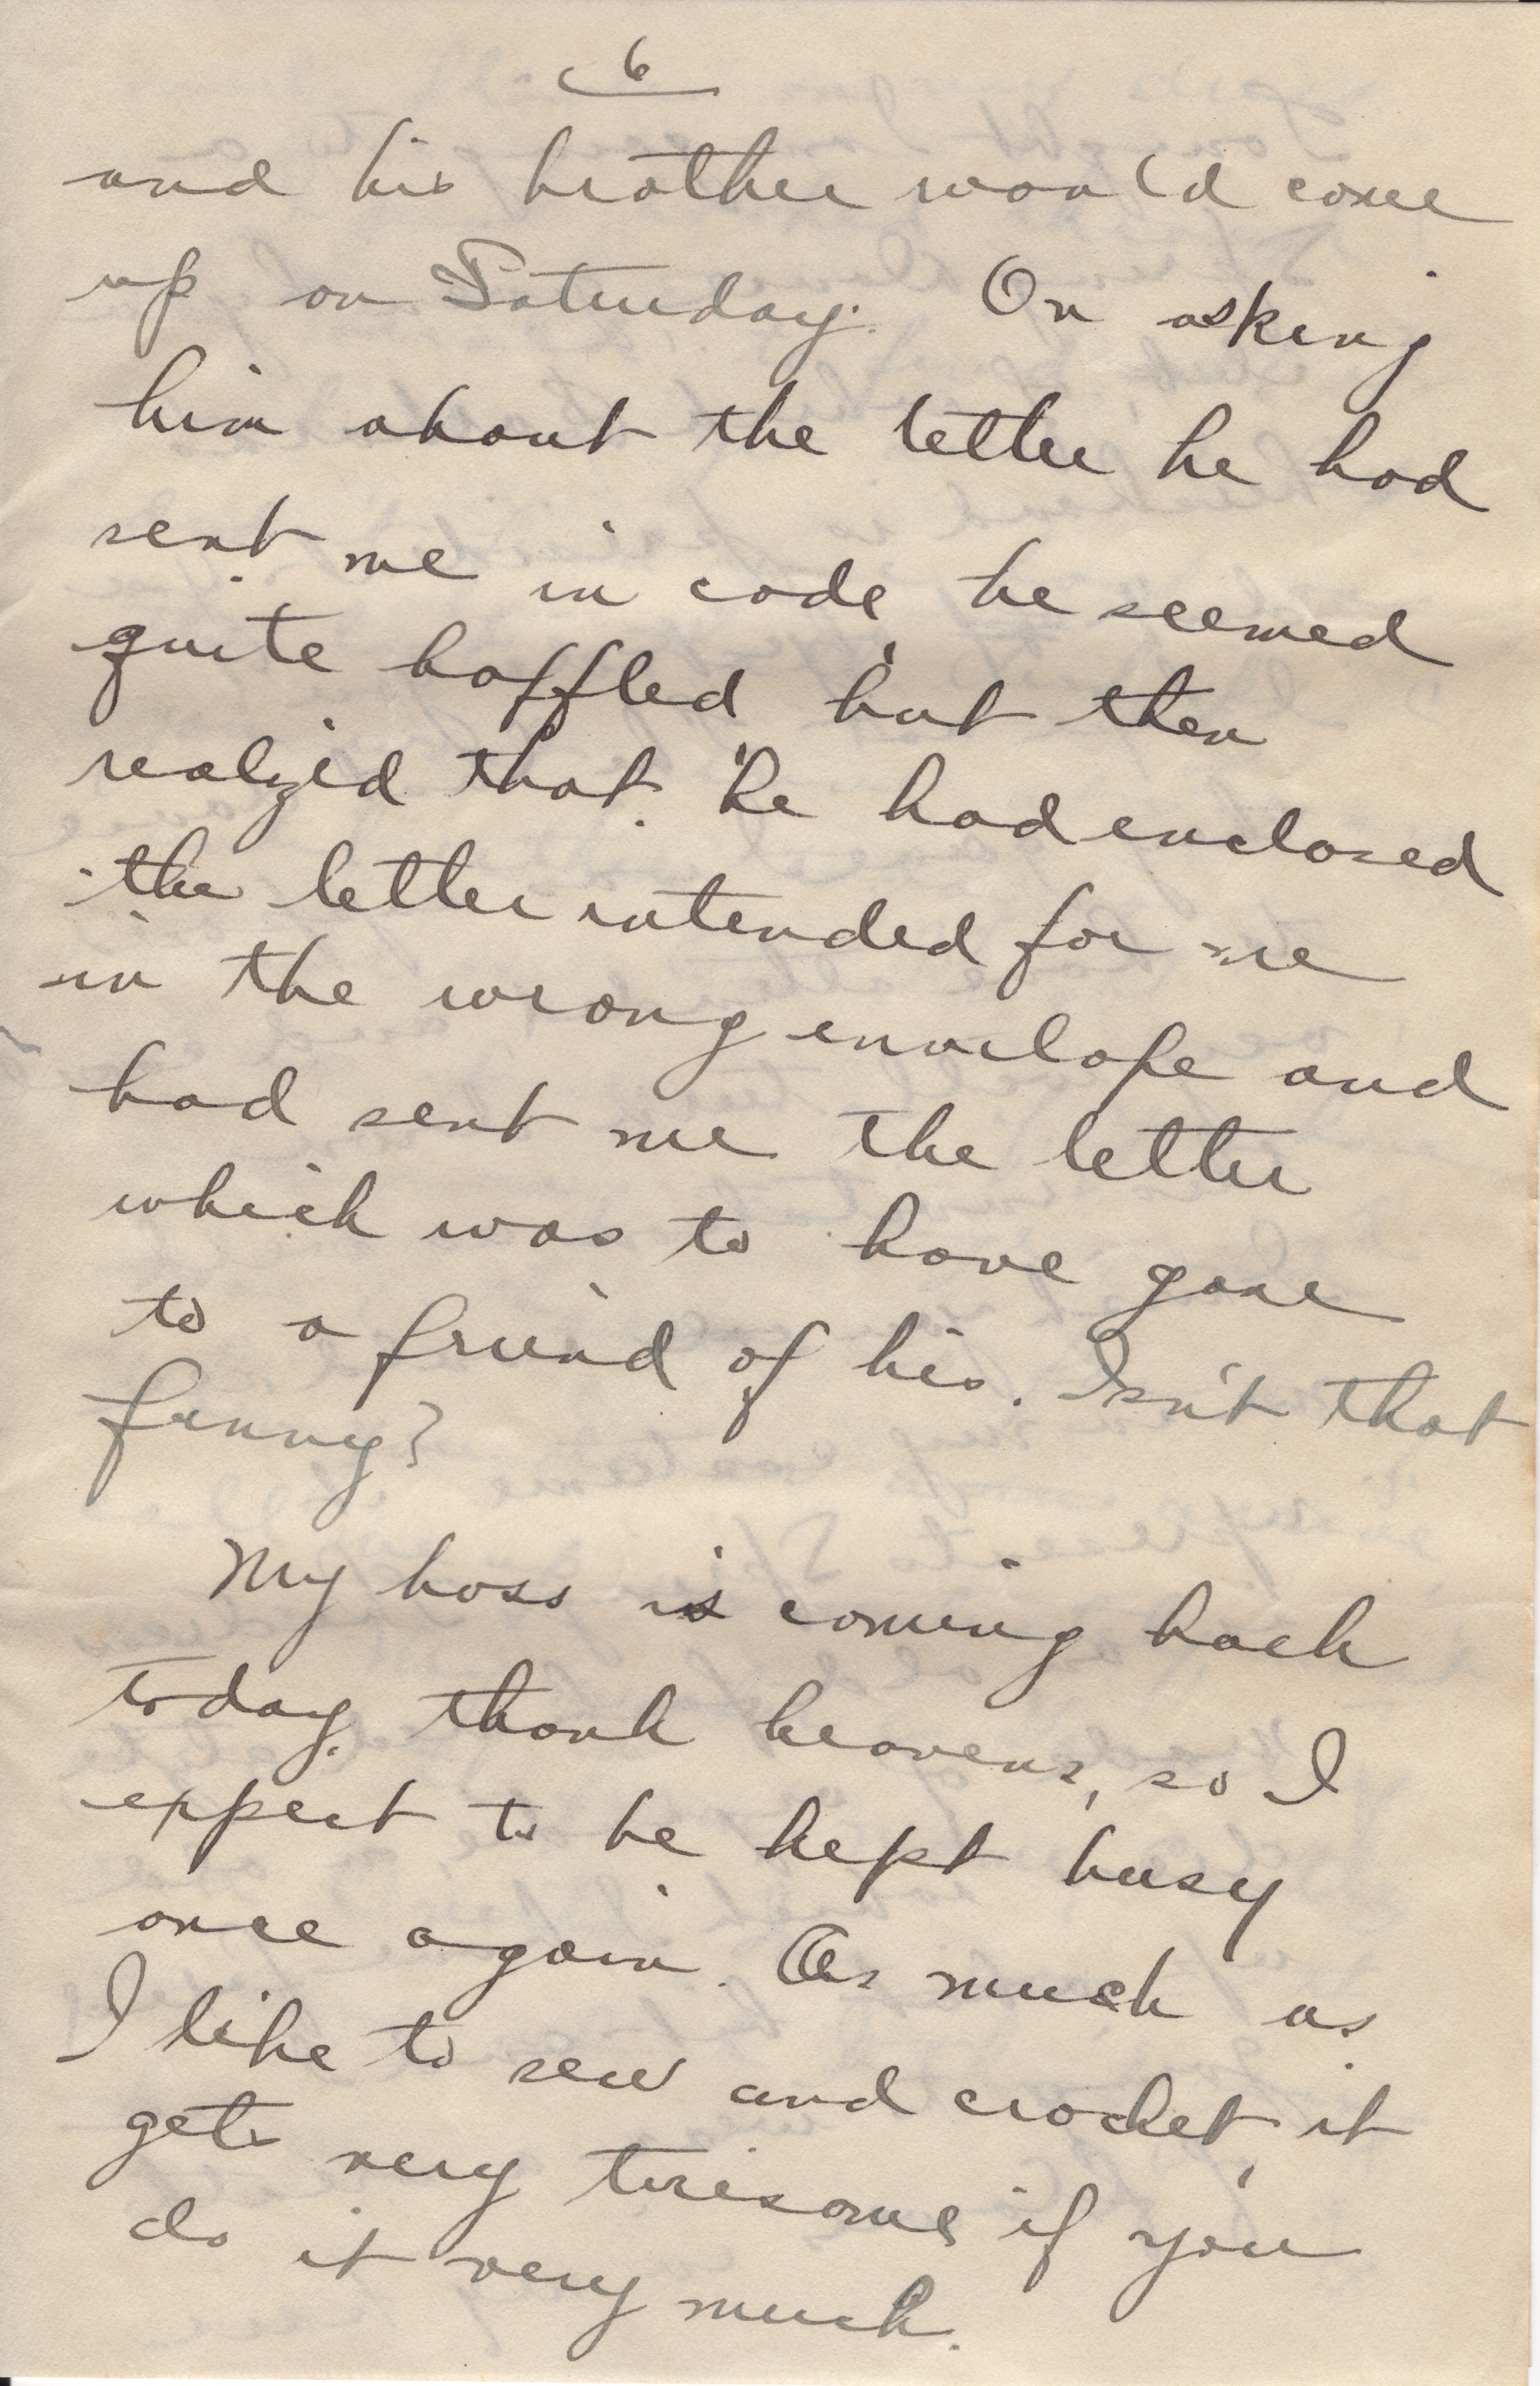 6
and his brother would come
up on Saturday. On asking
him about the letter he had
sent me in code, he seemed
quite baffled, but then
realized that he had enclosed
the letter intended for me
in the wrong envelope and
had sent me the letter
which was to have gone
to a friend of his. Isn't that
funny?
My boss is coming back
today, thank heavens, so I
expect to be kept busy
once again. As much as
I like to sew and crochet, it
gets very tiresome if you
do it very much.